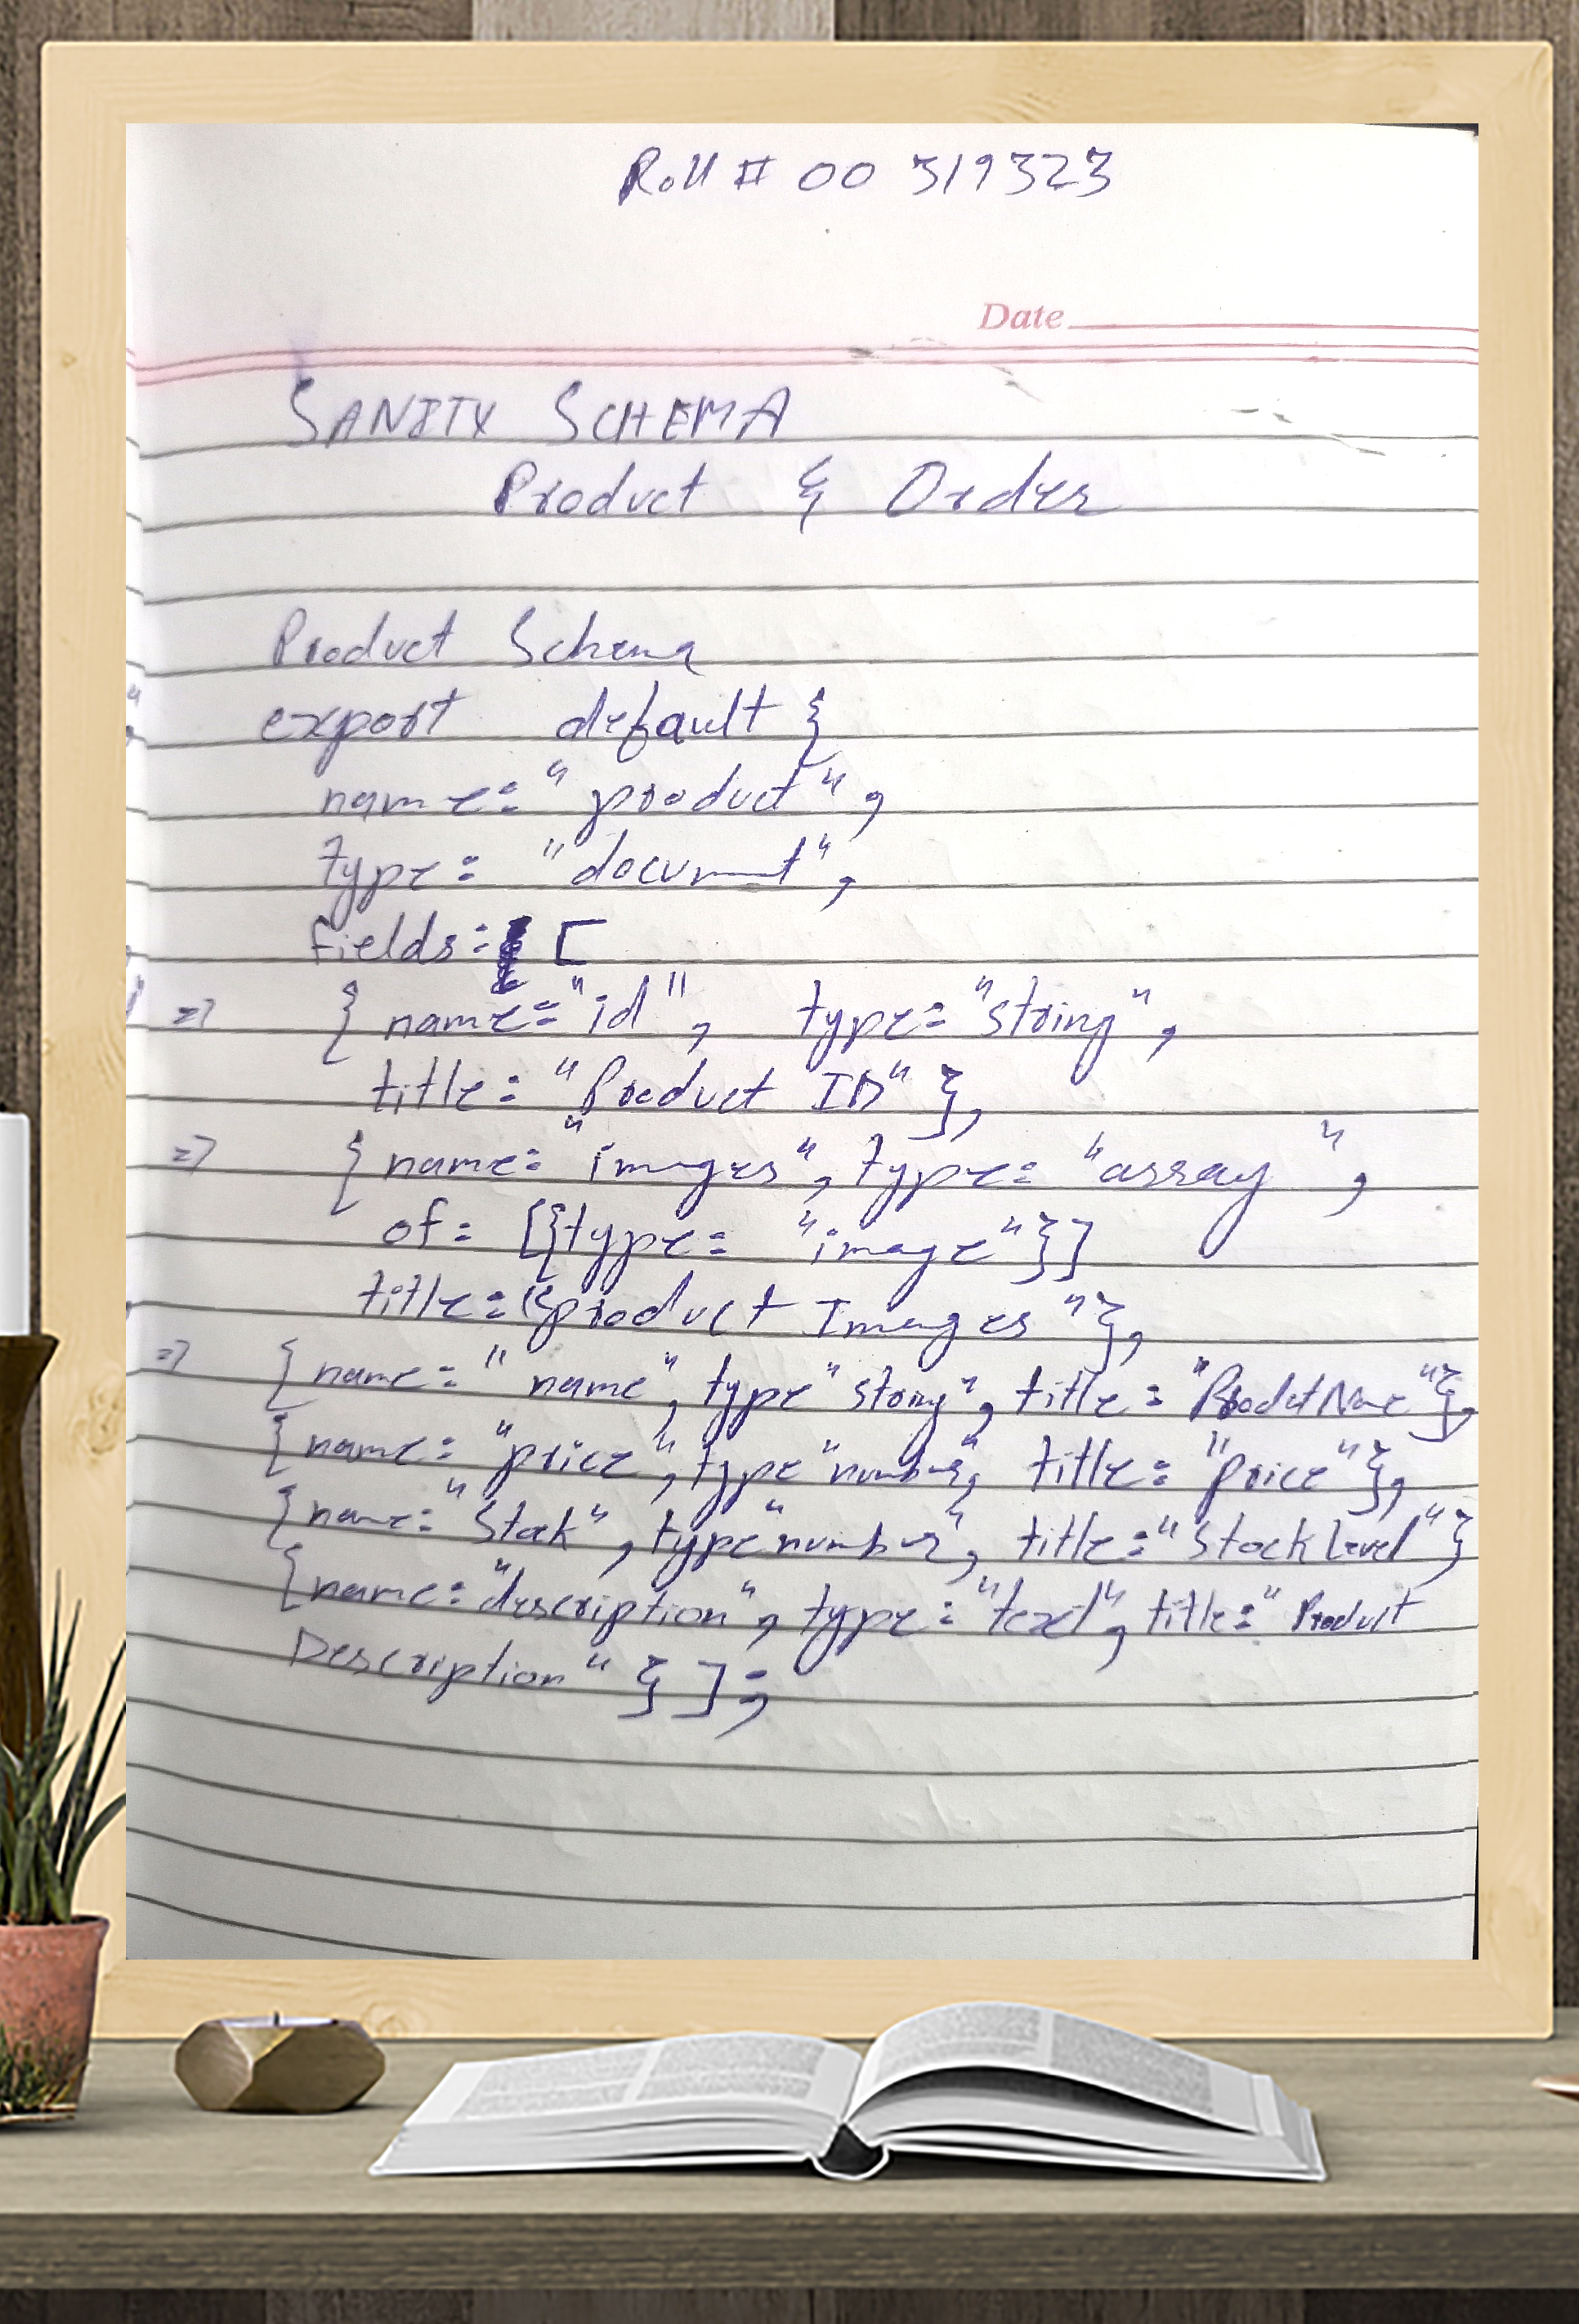 Roll # 00 319323
Date
SANITY SCHEMA
Product & Order
Product Schema
export default {
name: "product",
type: "document",
fields: [
=> { name: "id", type: "string",
title: "Product ID" },
=> { name: "images", type: "array",
of: [{type: "image"}]
title: "product Images"},
=> { name: "name", type "string", title: "Product Name"},
{ name: "price", type "number", title: "price"},
{ name: "Stock", type "number", title: "Stock Level"}
{ name: "description", type: "text", title: "Product
Description" } ];